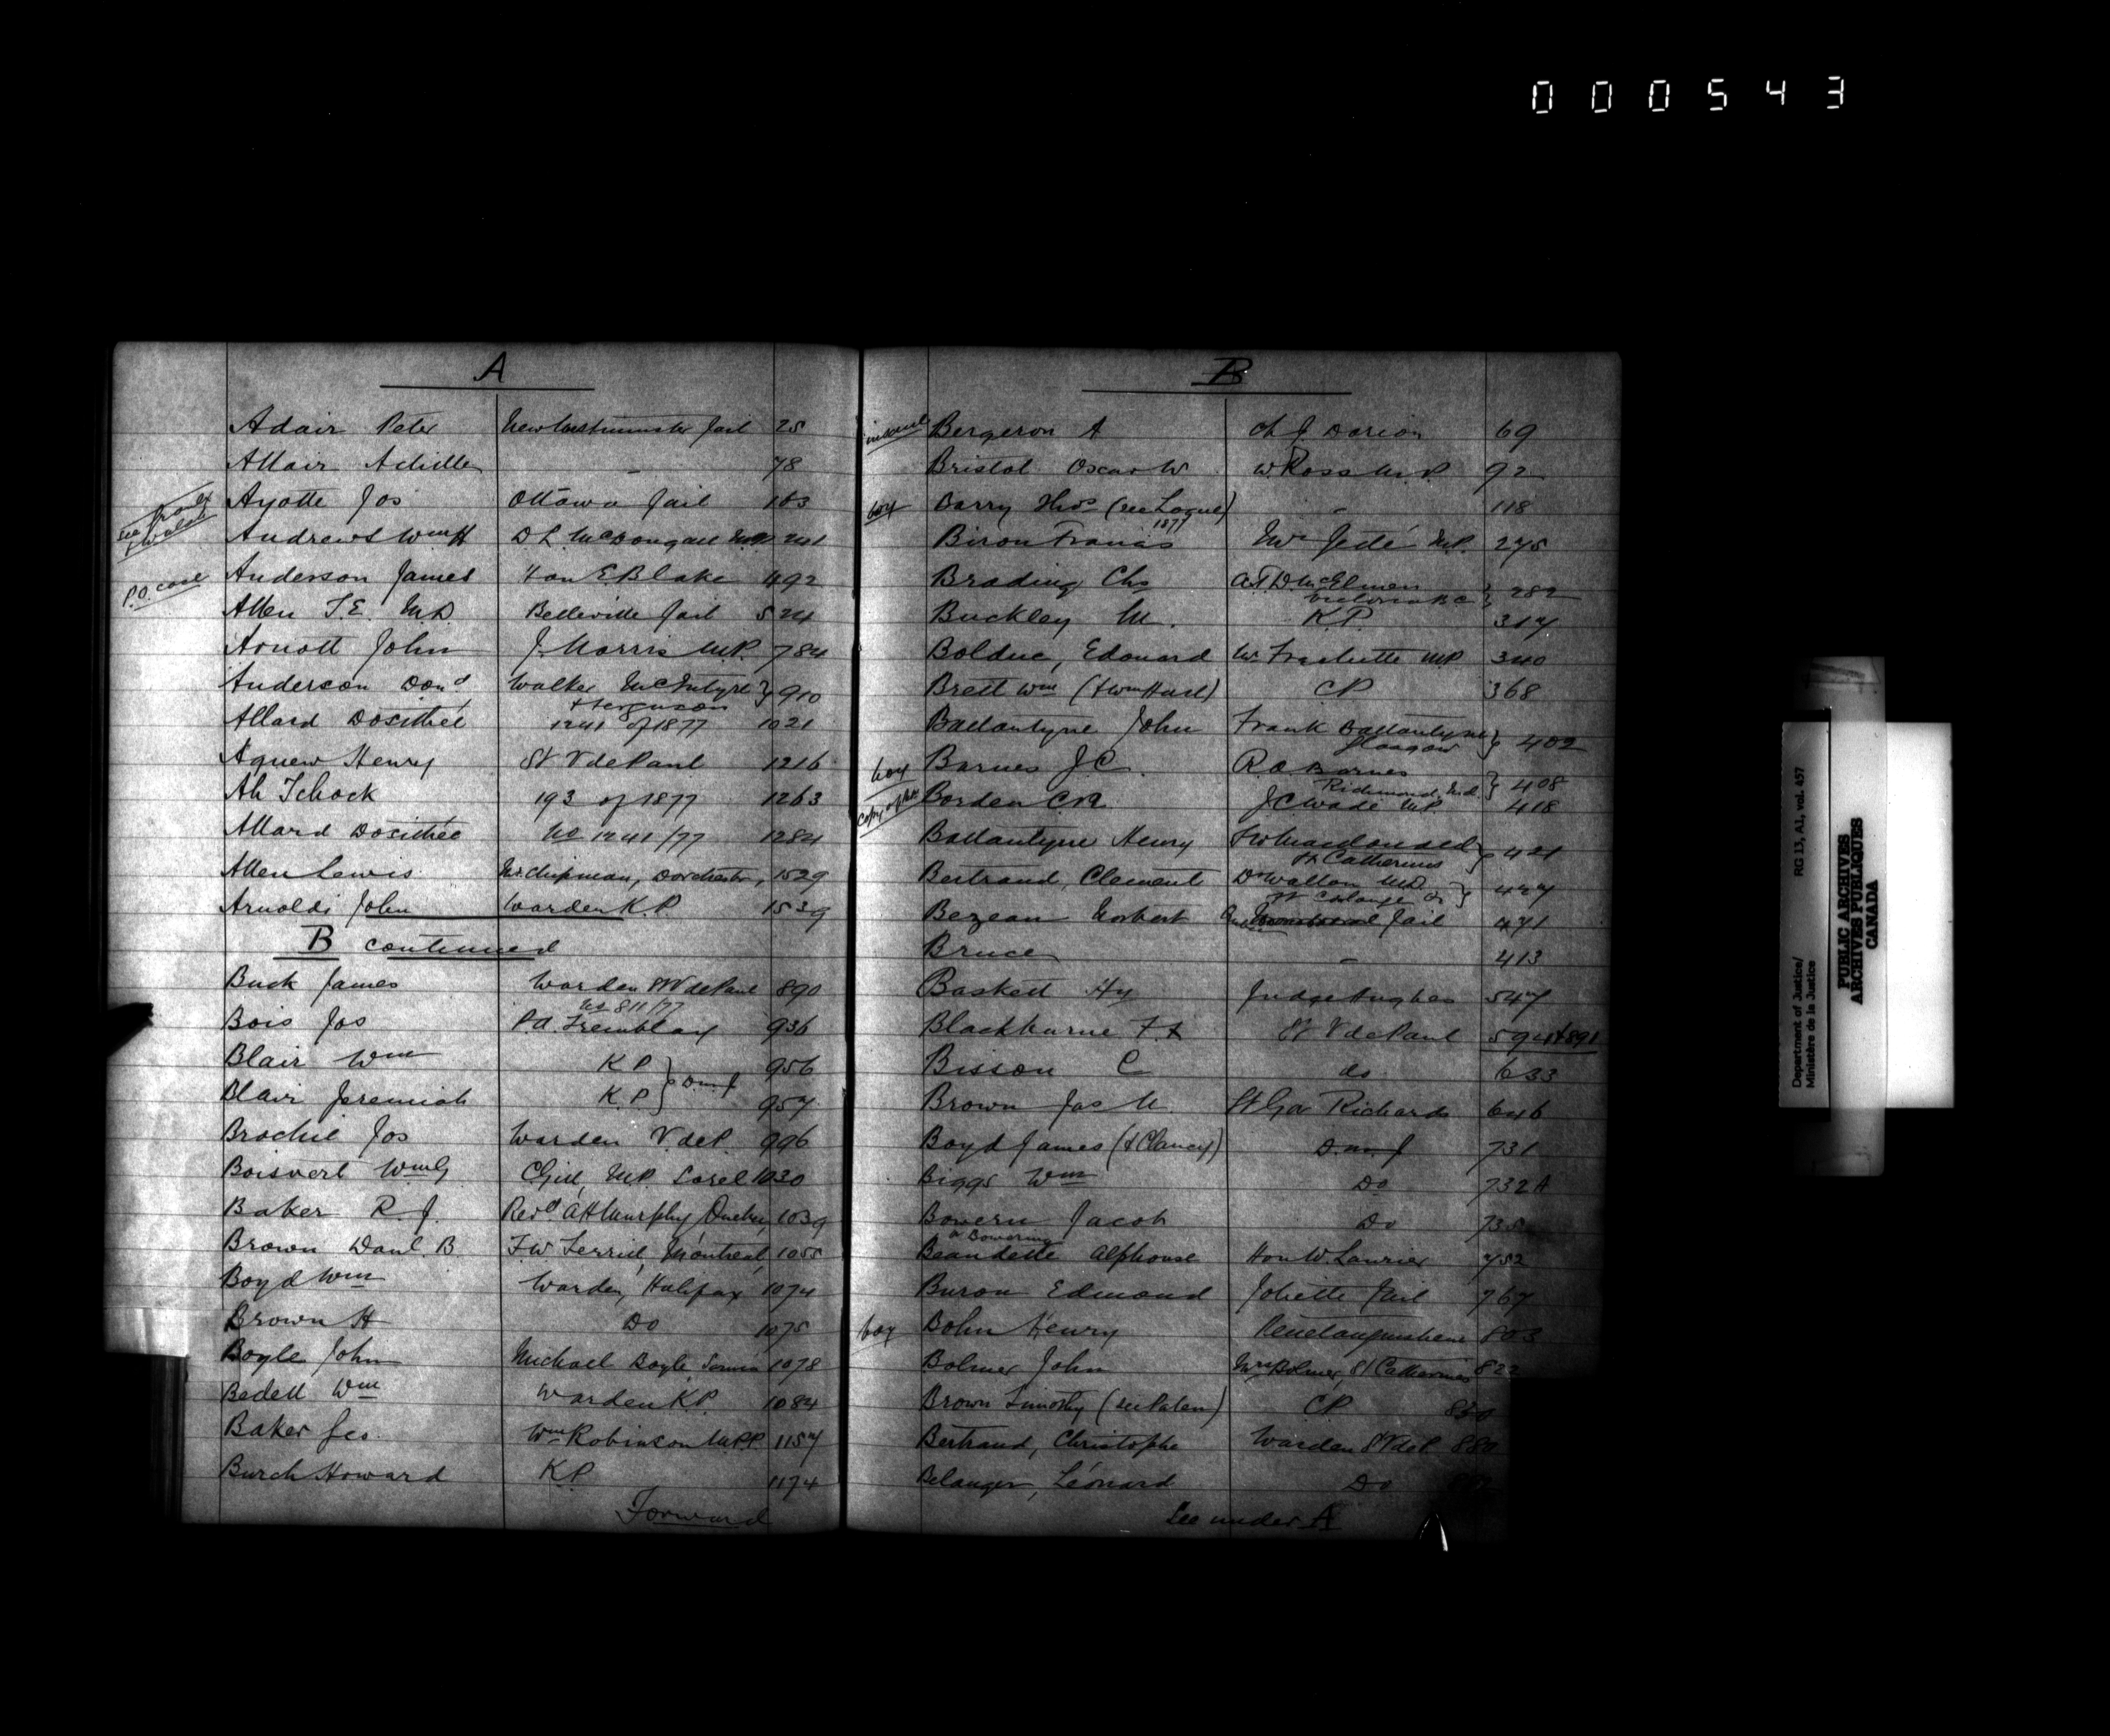 000543
A
Adair Peter New Westminster Jail 25
Allair Achille - 78
Ayotte Jos Ottawa Jail 103
see Walsh
Andrews Wm H D L McDougall MP 241
P.O. case
Anderson James Hon E Blake 492
Allen T.E. M.D. Belleville Jail 524
Arnott John J. Morris M.P. 784
Anderson Dond Walker McIntyre & Ferguson } 910
Allard Dosithée 1241 of 1877 1021
Agnew Henry St V de Paul 1216
Ah Tchock 193 of 1877 1263
Allard Dosithée No 1241/77 1284
Allen Lewis Mr Chipman, Dorchester, 1529
Arnoldi John Warden K.P. 1539
B continued
Buck James Warden St V de Paul 890
Bois Jos No 811/77 P.A. Tremblay 936
Blair Wm K P } D.m.J 956
Blair Jeremiah K.P } 957
Brochie Jos Warden V. de P. 996
Boisvert Wm G Gill, M.P. Sorel 1030
Baker R. J. Revd A H Murphy Quebec, 1039
Brown Danl. B F.W Terrill, Montreal, 1055
Boyd Wm Warden, Halifax 1074
Brown H Do 1075
Boyle John Michael Boyle Sarnia 1078
Bedell Wm Warden K.P. 1084
Baker Geo. Wm Robinson M.P.P. 1157
Burch Howard K.P 1174
Forward
B
Bergeron A Ch J. Dorion 69
Bristol Oscar W. W. Ross M.P. 92
boy Barry Thos (see Logue) - 118
1877
Biron Francis Mr Jetté M.P. 275
Brading Chs A.T.D. McElmen Victoria B C } 282
Buckley M. K.P. 317
Bolduc, Edouard Mr Frechette M.P. 340
Brett Wm (& Wm Hasl) C P 368
Ballantyne John Frank Ballantyne Glasgow } 402
boy Barnes J.C. R.A Barnes Richmond, Ind. } 408
Borden C.R. J C Wade M.P. 418
Ballantyne Henry F W Macdonald St Catherines } 421
Bertrand, Clement Dr Wallon M.D. } 427
Bezeau Norbert Jail 471
Bruce - 413
Baskett Hy Judge Hughes 547
Blackburne F. St V de Paul 594 & 891
Bisson C do 633
Brown Jas M Lt Gov Richards 646
Boyd James (& Clancy) D.m.J 731
Biggs Wm Do 732A
Bowern Jacob Do 735
or Bowering
Beaudette Alphonse Hon W. Laurier 752
Buron Edmond Joliette Jail 767
boy Bohn Henry Penetanguishene 803
Bolmer John Mrs Bolmer, St Catherines 822
Brown Timothy (see Palen) C P 850
Bertrand, Christophe Warden St V de P. 889
Belanger, Léonard Do
See under A
Department of Justice/
Ministère de la Justice
RG 13, A1, vol. 457
PUBLIC ARCHIVES
ARCHIVES PUBLIQUES
CANADA